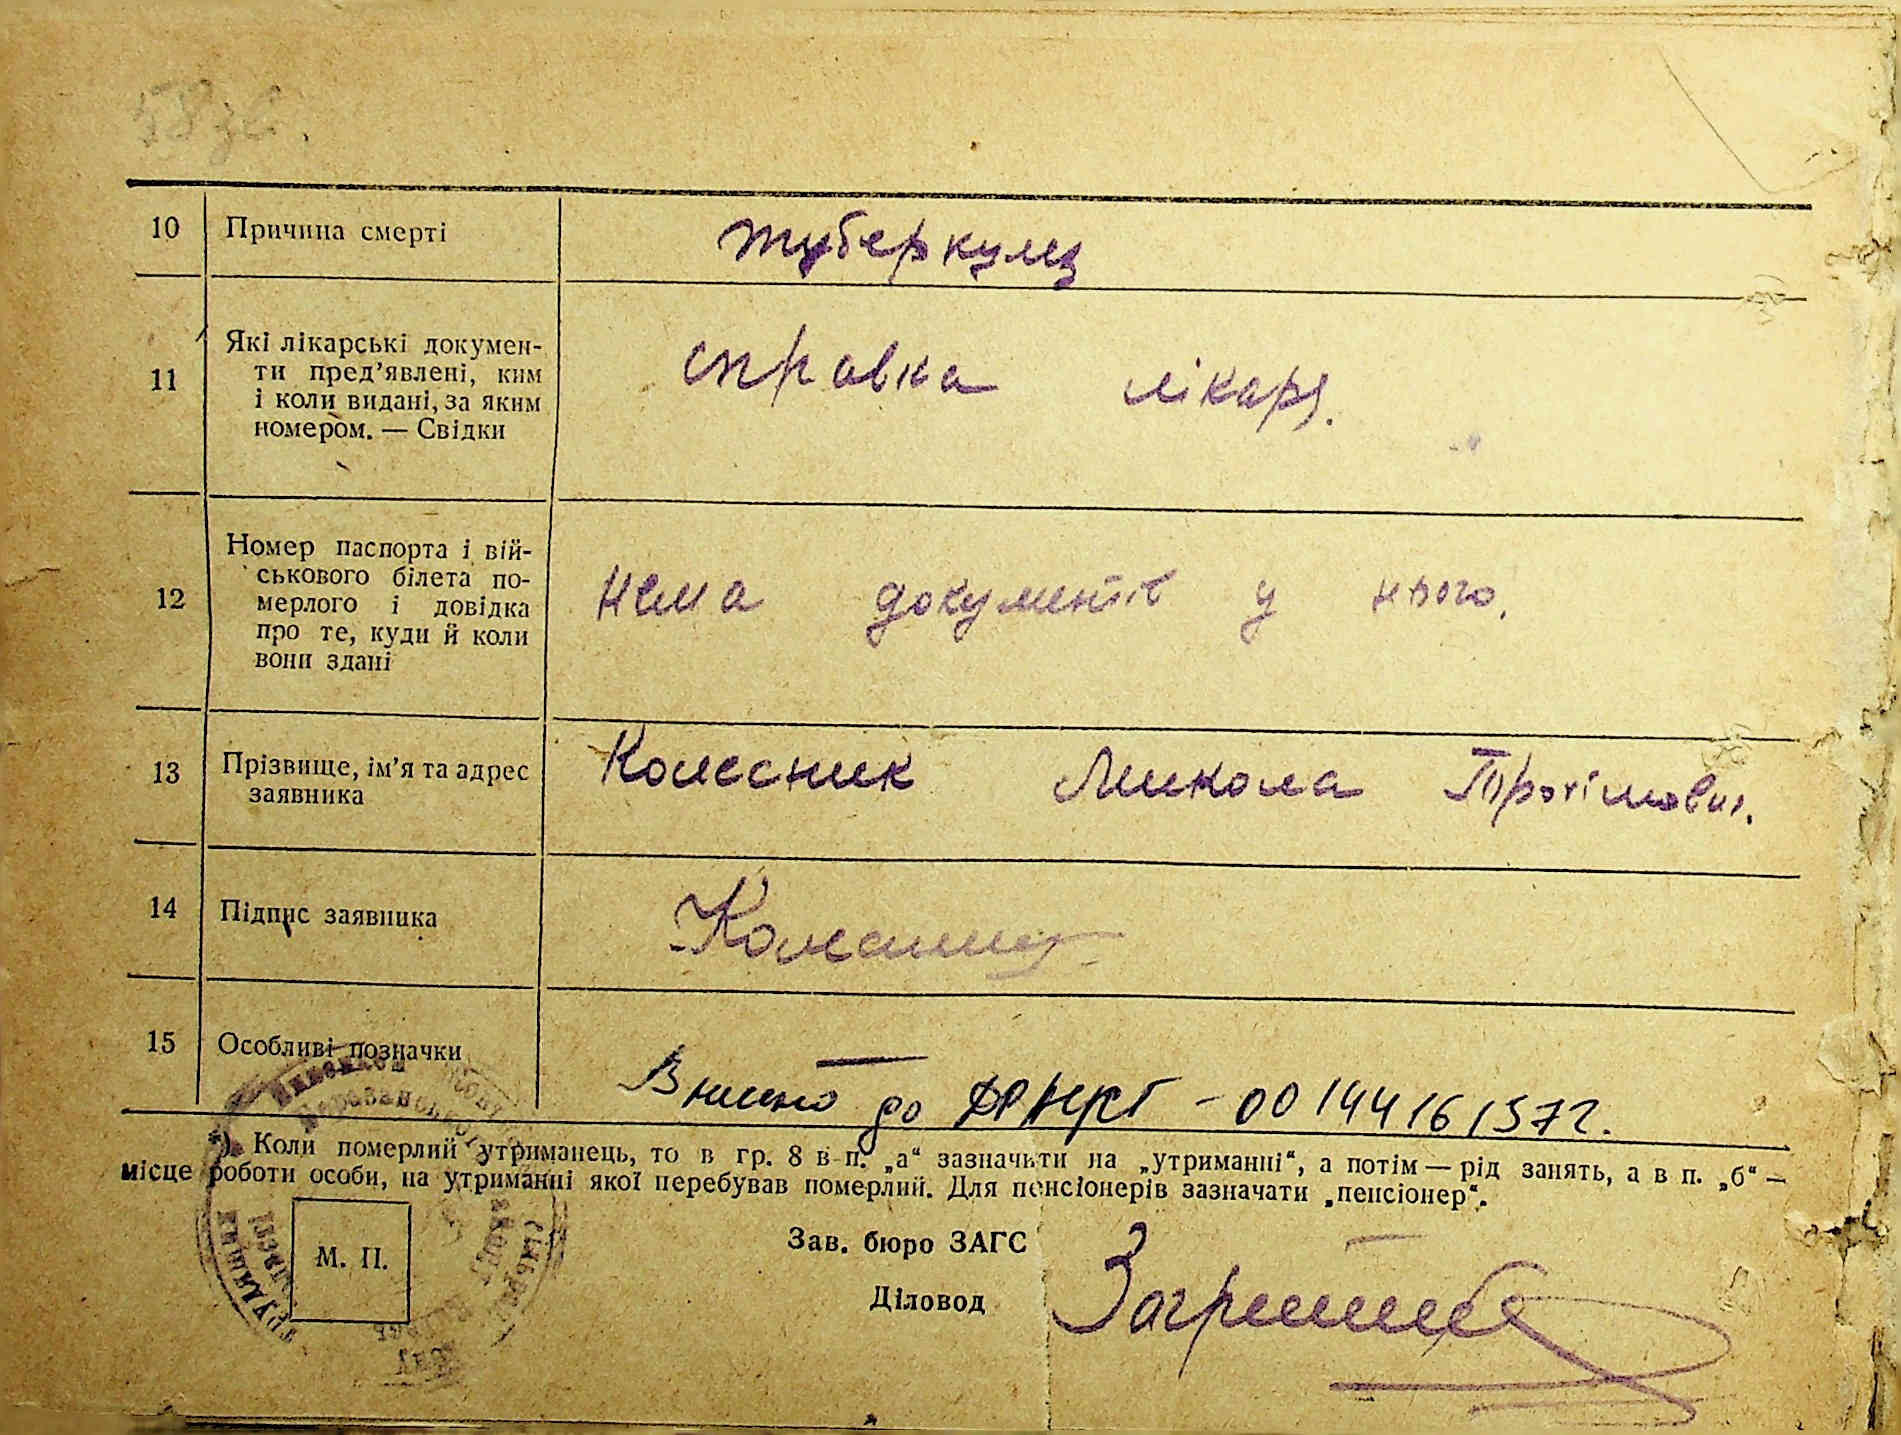 58 зв.
10 Причина смерті туберкулз
11 Які лікарські докумен-
ти пред’явлені, ким
і коли видані, за яким
номером. — Свідки
справка лікаря.
12 Номер паспорта і вій-
ськового білета по-
мерлого і довідка
про те, куди й коли
вони здані
нема документів у нього.
13 Прізвище, ім’я та адрес
заявника
Колесник Микола Трохімович.
14 Підпис заявника Колесник
15 Особливі позначки
Внесено до ДРАЦСГ - 00144161572.
*) Коли померлий утриманець, то в гр. 8 в п. „а“ зазначати на „утриманні“, а потім — рід занять, а в п. „б“ —
місце роботи особи, на утриманні якої перебував померлий. Для пенсіонерів зазначати „пенсіонер“.
М. П.
Зав. бюро ЗАГС
Діловод